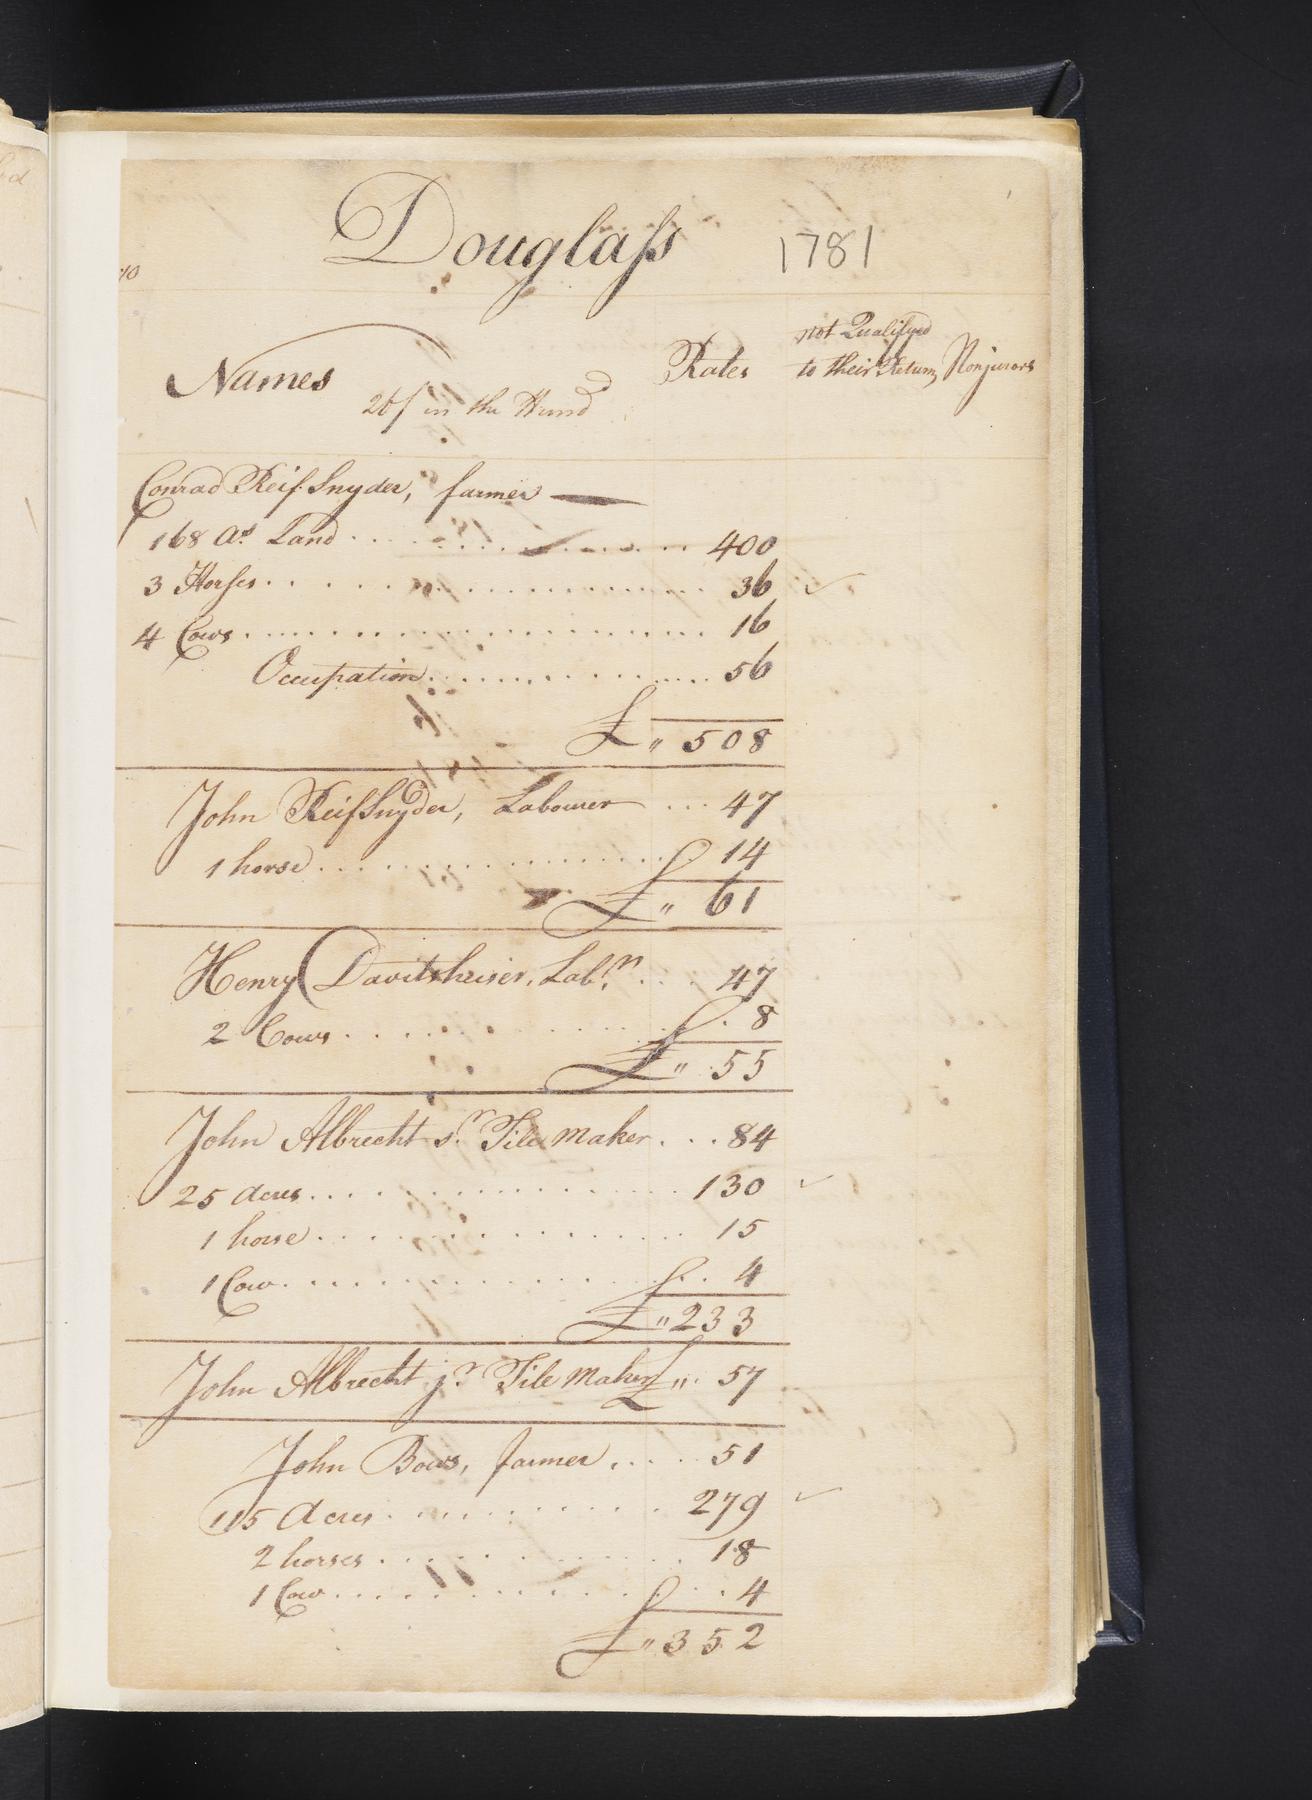 Douglaſs 1781
Names Rates not Qualifyed to their Return Nonjurors
20/ in the Hund
Conrad ReifSnyder, farmer
168 As Land 400
3 Horſes 36
4 Cows 16
Occupation 56
£ " 508
John ReifSnyder, Labourer 47
1 horse 14
£ " 61
Henry Davitsheiser, Labr 47
2 Cows 8
£ " 55
John Albrecht sr Tile maker 84
25 acres 130
1 horse 15
1 Cow 4
£ " 233
John Albrecht jr Tile maker £ " 57
John Bows, farmer 51
115 Acres 279
2 horses 18
1 Cow 4
£ " 352